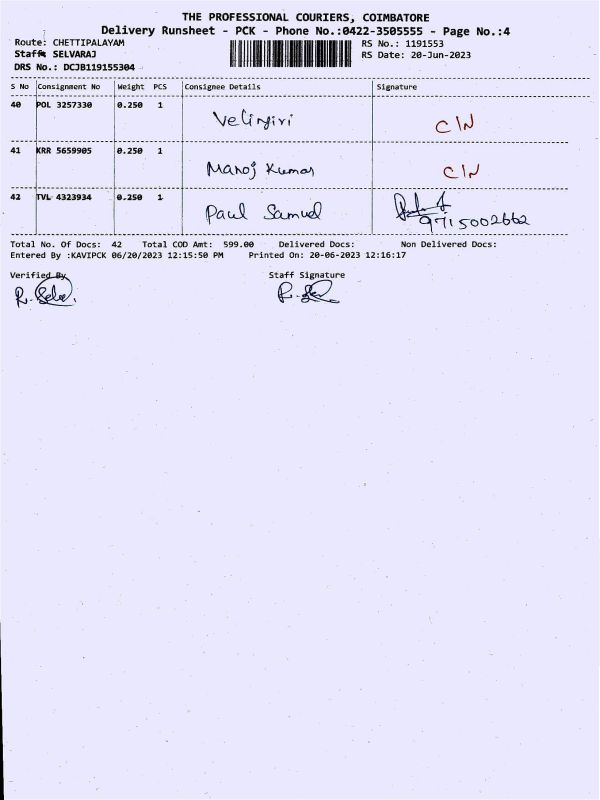 THE PROFESSIONAL COURIERS, COIMBATORE
Delivery Runsheet - PCK - Phone No.:0422-3505555 - Page No.:4
Route: CHETTIPALAYAM RS No.: 1191553
Staff: SELVARAJ RS Date: 20-Jun-2023
DRS No.: DCJB119155304
S No Consignment No Weight PCS Consignee Details Signature
40 POL 3257330 0.250 1 Velingiri C/N
41 KRR 5659905 0.250 1 Manoj Kumar C/N
42 TVL 4323934 0.250 1 Paul Samuel
9715002662
Total No. Of Docs: 42 Total COD Amt: 599.00 Delivered Docs: Non Delivered Docs:
Entered By :KAVIPCK 06/20/2023 12:15:50 PM Printed On: 20-06-2023 12:16:17
Verified By Staff Signature